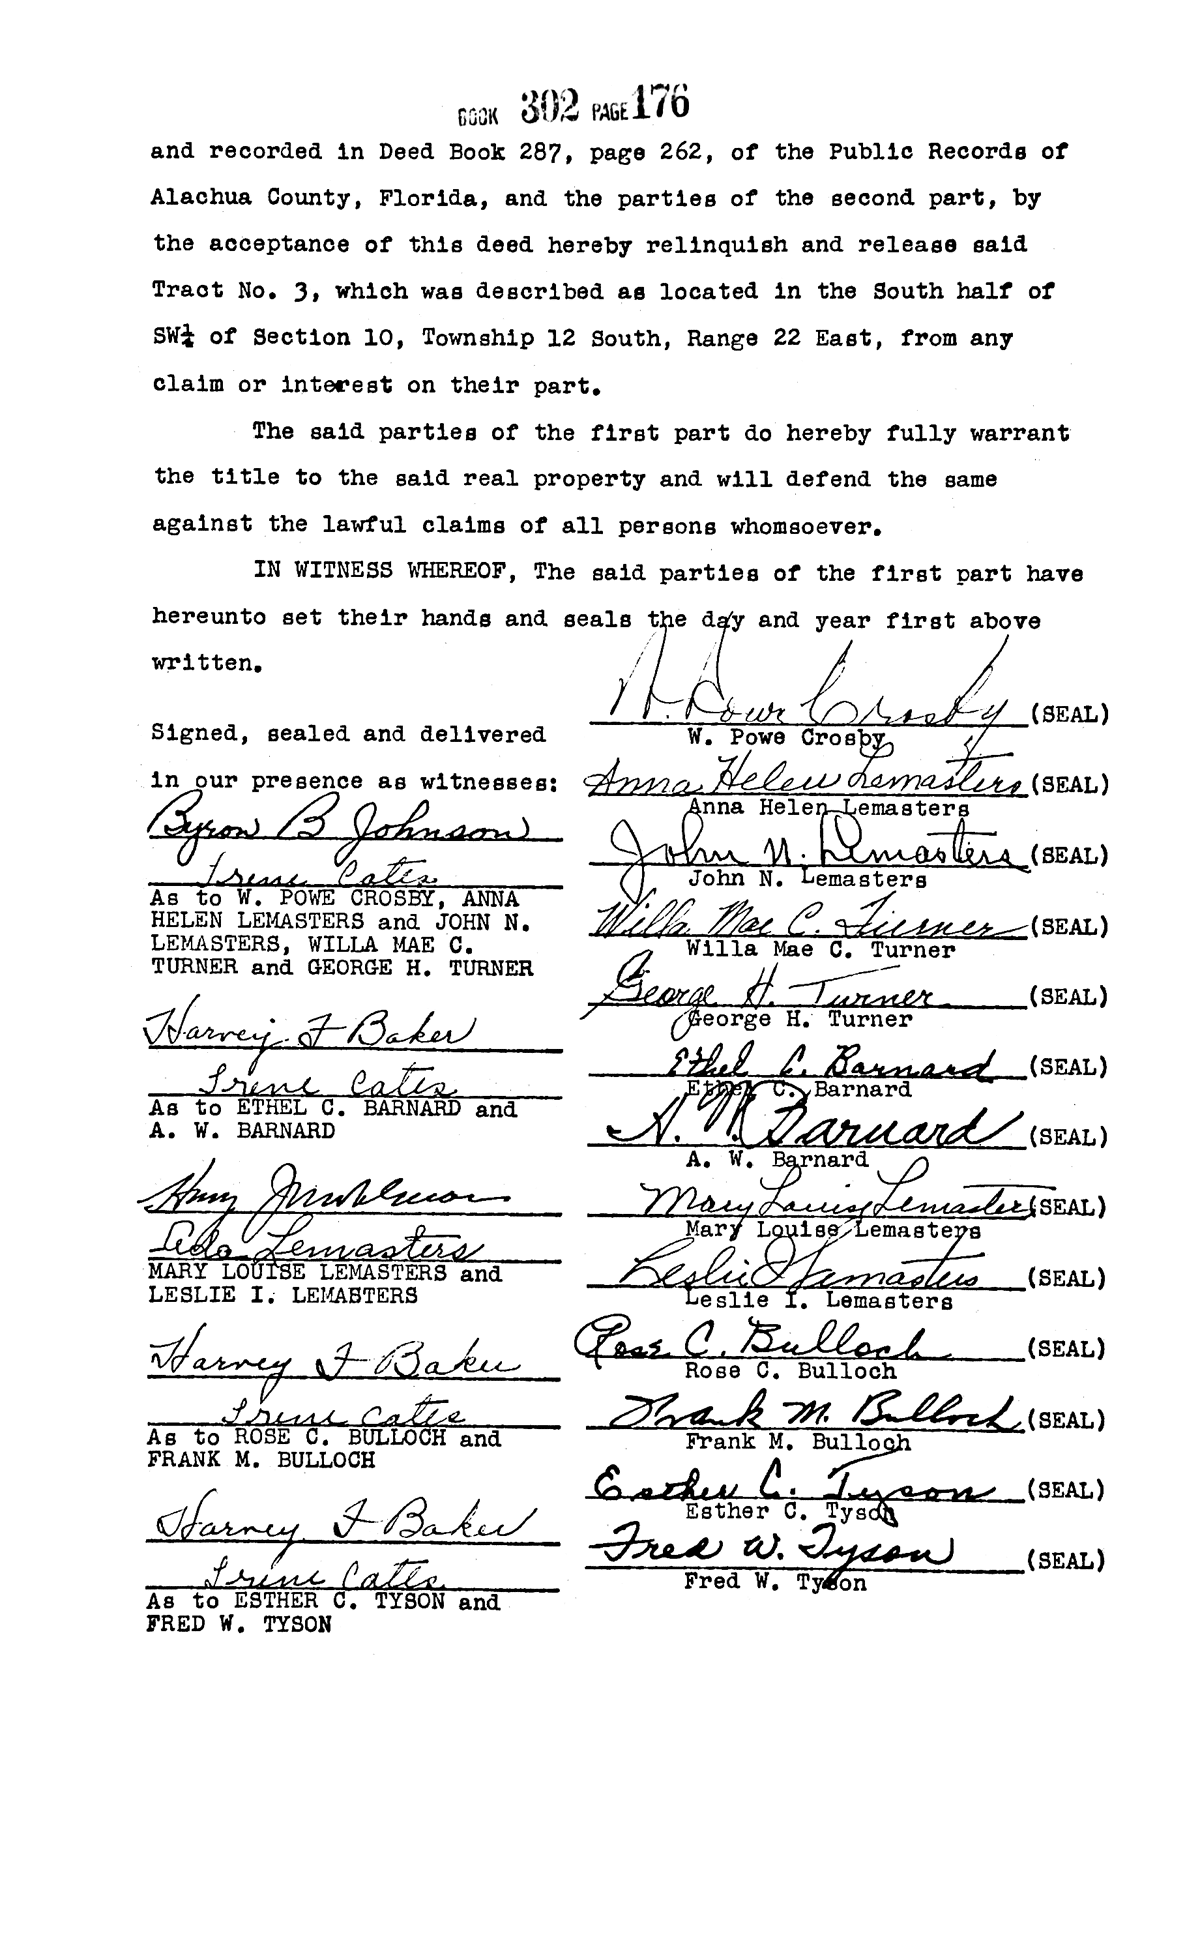 BOOK 302 PAGE 176
and recorded in Deed Book 287, page 262, of the Public Records of
Alachua County, Florida, and the parties of the second part, by
the acceptance of this deed hereby relinquish and release said
Tract No. 3, which was described as located in the South half of
SW¼ of Section 10, Township 12 South, Range 22 East, from any
claim or interest on their part.
The said parties of the first part do hereby fully warrant
the title to the said real property and will defend the same
against the lawful claims of all persons whomsoever.
IN WITNESS WHEREOF, The said parties of the first part have
hereunto set their hands and seals the day and year first above
written.
Signed, sealed and delivered
in our presence as witnesses:
Byron B Johnson
Irene Cates
As to W. POWE CROSBY, ANNA
HELEN LEMASTERS and JOHN N.
LEMASTERS, WILLA MAE C.
TURNER and GEORGE H. TURNER
Harvey F Baker
Irene Cates
As to ETHEL C. BARNARD and
A. W. BARNARD
Ada Lemasters
MARY LOUISE LEMASTERS and
LESLIE I. LEMASTERS
Harvey F Baker
Irene Cates
As to ROSE C. BULLOCH and
FRANK M. BULLOCH
Harvey F Baker
Irene Cates
As to ESTHER C. TYSON and
FRED W. TYSON
W. Powe Crosby (SEAL)
W. Powe Crosby
Anna Helen Lemasters (SEAL)
Anna Helen Lemasters
John N. Lemasters (SEAL)
John N. Lemasters
Willa Mae C. Turner (SEAL)
Willa Mae C. Turner
George H. Turner (SEAL)
George H. Turner
Ethel C. Barnard (SEAL)
Ethel C. Barnard
A. W. Barnard (SEAL)
A. W. Barnard
Mary Louise Lemasters (SEAL)
Mary Louise Lemasters
Leslie I Lemasters (SEAL)
Leslie I. Lemasters
Rose C. Bulloch (SEAL)
Rose C. Bulloch
Frank M. Bulloch (SEAL)
Frank M. Bulloch
Esther C. Tyson (SEAL)
Esther C. Tyson
Fred W. Tyson (SEAL)
Fred W. Tyson